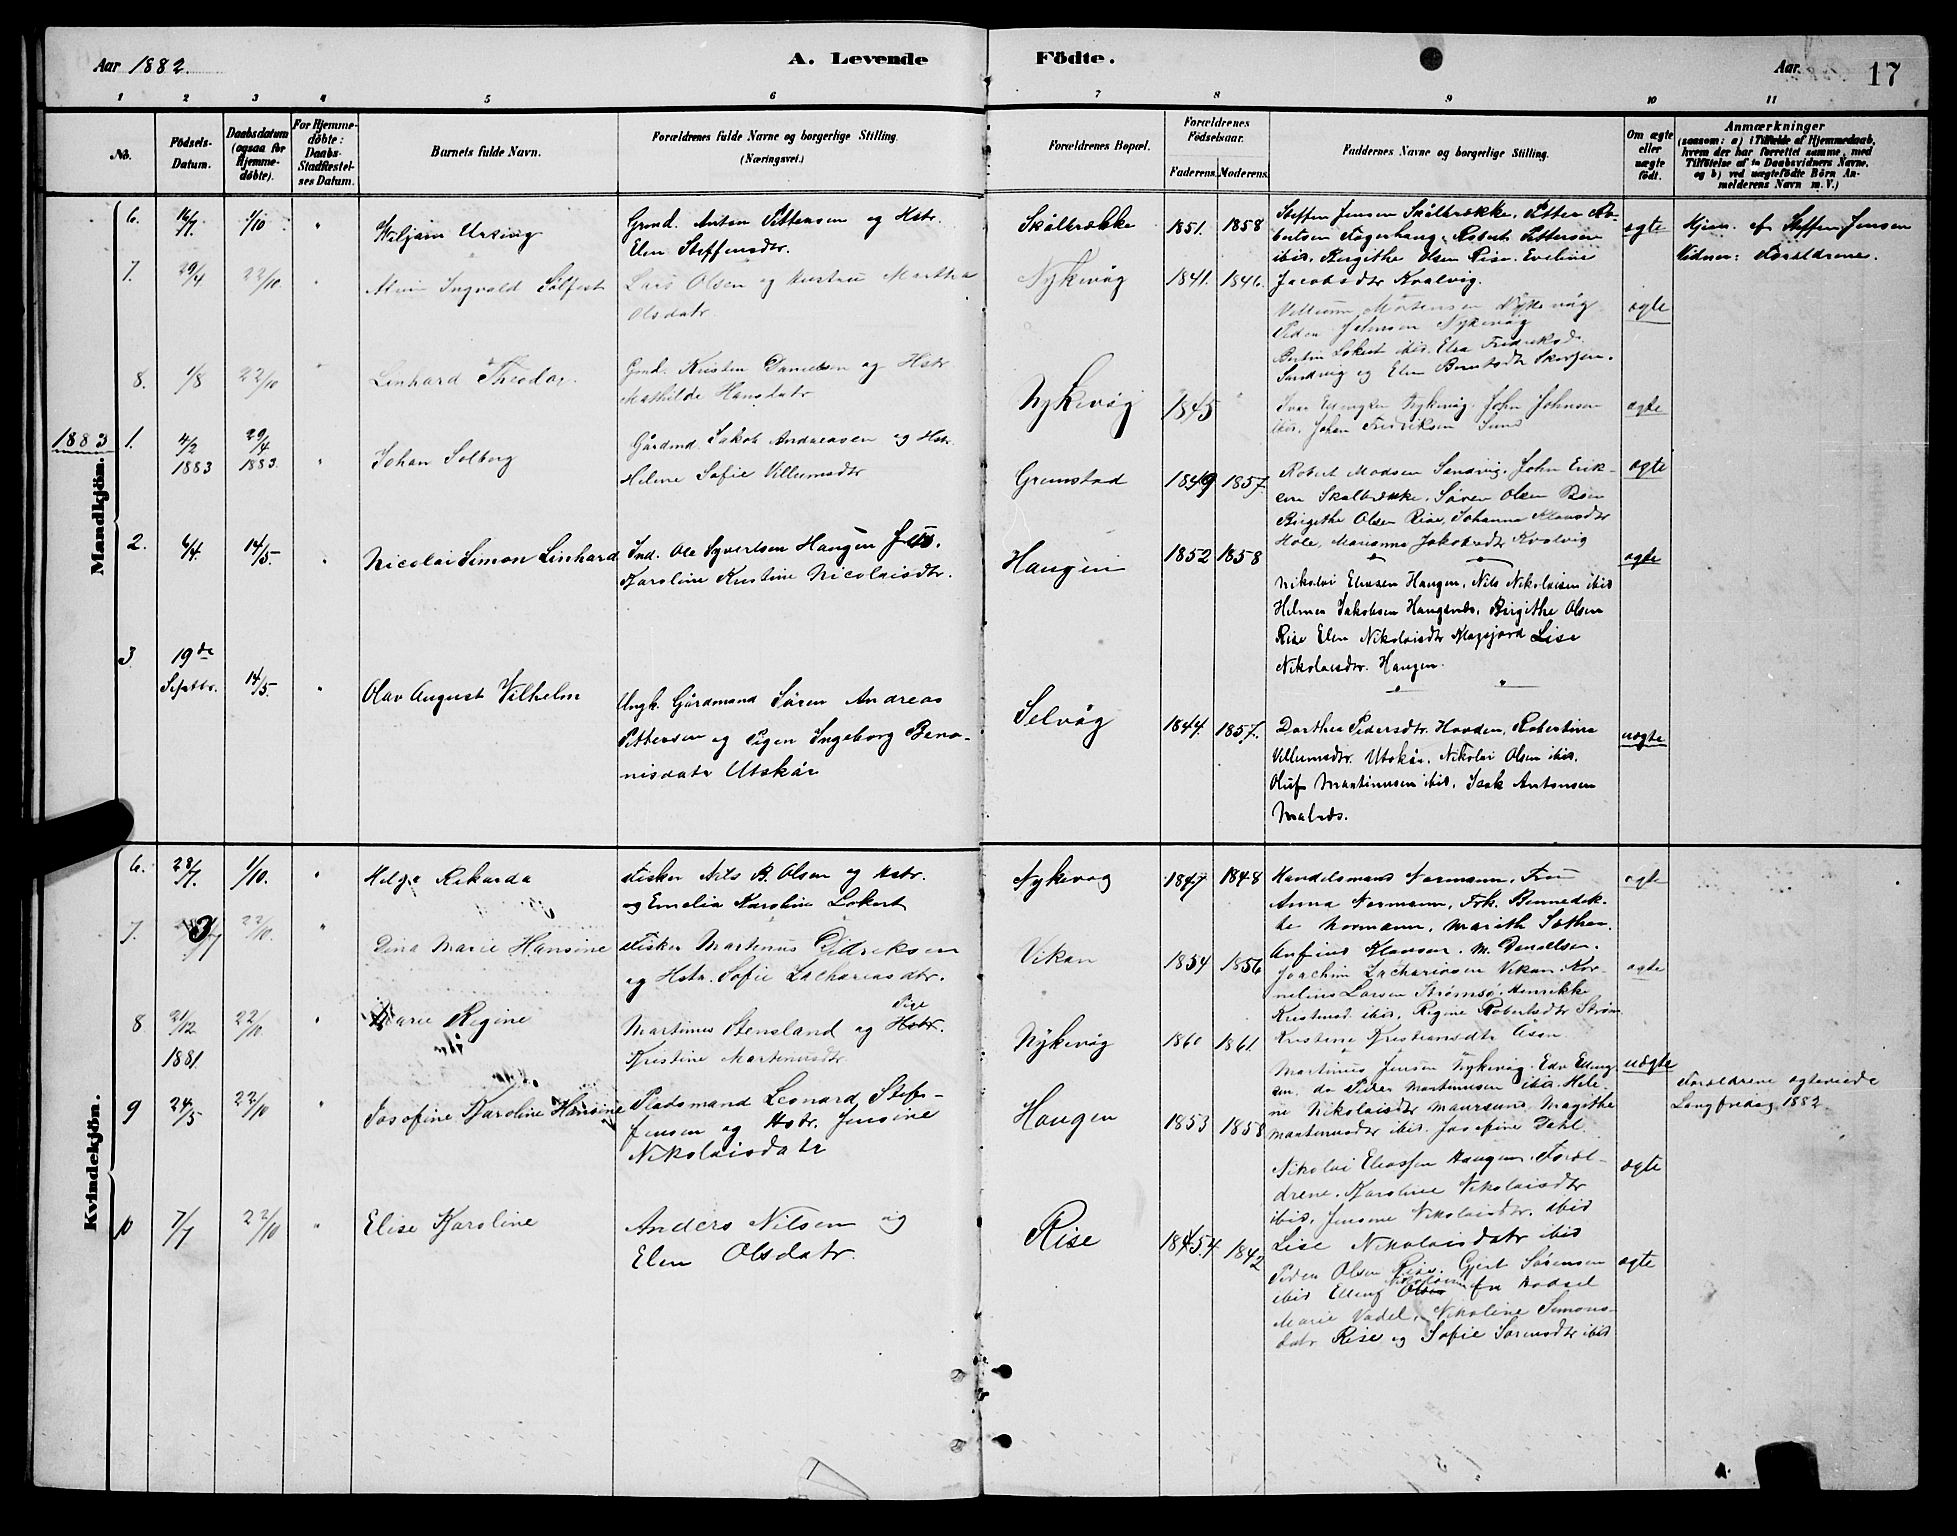 Aar 1882. A. Levende Födte. Aar. 17
1 2 3 4 5 6 7 8 9 10 11
No.
Födsels-Datum.
Daabsdatum (ogsaa for Hjemme-döbte).
For Hjemme-döbte: Daabs-Stadfæstel-ses Datum.
Barnets fulde Navn.
Forældrenes fulde Navne og borgerlige Stilling.
(Næringsvei.)
Forældrenes Bopæl.
Forældrenes Födselsaar.
Faderens. Moderens.
Faddernes Navne og borgerlige Stilling.
Om ægte eller uægte födt.
Anmærkninger
(saasom: a) i Tilfælde af Hjemmedaab,
hvem der har forrettet samme, med
Tilföielse af to Daabsvidners Navne,
og b) ved uægtefödte Börn An-
melderens Navn m. V.)
Mandkjön.
6. 16/7 1/10 " Wiljam
Grmd. Anton Pettersen og Hstr.
Elen Steffensdtr.
Skålbrække 1851. 1858
Steffen Jensen Skålbrække, Petter Ro-
bertsen Fagerhaug, Robert Pettersen
ibid, Birgithe Olsen Rise. Eveline
Jacobsdtr Kvalvig.
ægte
Hjem. af Steffen Jensen
Vidner: Forældrene.
7. 29/4 22/10 " Ingvald Solfest
Lars Olsen og Hustru Martha
Olsdatr.
Nykevåg 1841. 1846.
Villum Mortensen Nykevåg
Peder Jensen Nykevåg
Lokert ibid. Elea Fredriksd.
Sandvig og Elen Berntsdtr
ægte
8. 1/8 22/10 Linhard Theodor.
Grmd. Kristen Danielsen og Hstr.
Mathilde Hansdatr
Nykevåg 1845
Ivar Nykevåg. John Johnsen
ibid. Johan Fredriksen
ægte
1883
1. 4/2 1883 29/4 1883. " Johan Solberg
Gårdmd Jakob Andreasen og Hstr.
Helene Sofie Villumsdtr
Grimstad 1849 1857.
Robert Madsen Sandvig, John Erik-
sen Skalbrække, Sören Olsen Böen
Birgithe Olsen Rise, Johanna
Hole, Marianna Jakobsdtr Kvalvig
ægte
2. 6/4 14/5. " Nicolai Simon Linhard
Ind. Ole Syvertsen Haugen
Karoline Kristine Nicolaisdtr.
Haugen 1852 1858
Nikolai Eliasen Haugen, Nils Nikolaisen ibid
Helmer Jakobsen Haugsnes, Birgithe Olsen
Rise Elen Nikolaisdtr Lise
Nikolaisdtr. Haugen.
ægte
3 19de Septbr. 14/5. " Olav August Vilhelm
Ungk. Gårdmand Sören Andreas
Pettersen og Pigen Ingeborg Beno-
nisdatr Utskår
Selvåg 1844. 1857.
Dorthea Pedersdtr. Hovden, Robertine
Villumsdtr. Utskår, Nikolai Olsen ibid.
Oluf Martinusen ibid, Isak Antonsen
Malnes.
uægte
Kvindekjön.
6. 28/7. 1/10. " Helga Rikarda
Fisker Nils B. Olsen og Hstr.
og Emelia Karoline Lokert
Nykevog 1847 1848
Handelsmand Normann, Fru
Anna Normann, Frk. Bennedik-
te Normann, Marith
Hansen. M. Danielsen.
ægte
7. 3/7 22/10. " Dina Marie Hansine
Fisker Martinus Didriksen
og Hstr. Sofie Zachariasdtr.
Vikan 1854 1856
Joachim Zachariasen Vikan, Kor-
nelius Larsen Strömsö, Henrikke
Kristensd. ibid, Regine Robertsdtr
Kristine Kristiansdtr
ægte
8 21/12 1881. 22/10. " Marie Regine
Martinus Stensland og Hstr. Pige
Kristine Martinusdtr
Nykevåg 1860 1861.
Martinus Jensen Nykevåg. Edv. Elling-
sen, do Peder Martinusen ibid. Hele-
ne Nikolaisdtr Maursund, Magithe
Martinusdtr ibid. Josefine Dahl.
uægte
Forældrene ægteviede
Langfredag 1882.
9 24/5 22/10 " Josefine Karoline Hansine
Pladsmand Leonard Stef-
fensen og Hstr. Jensine
Nikolaisdatr
Haugen 1853 1858
Nikolai Eliassen Haugen, Foræl-
drene, Karoline Nikolaisdtr
ibid, Jensine Nikolaisdtr. ibid
Lise Nikolaisdatr ibid
ægte
10 7/7 22/10 " Elise Karoline
Anders Nilsen og
Elen Olsdatr.
Rise 1854. 1842
Peder Olsen Rise. Gjert Sörensen
ibid Elling fra Hadsel
Marie Vadel, Nikoline Simons-
datr Rise og Sofie Sörensdtr ibid
ægte